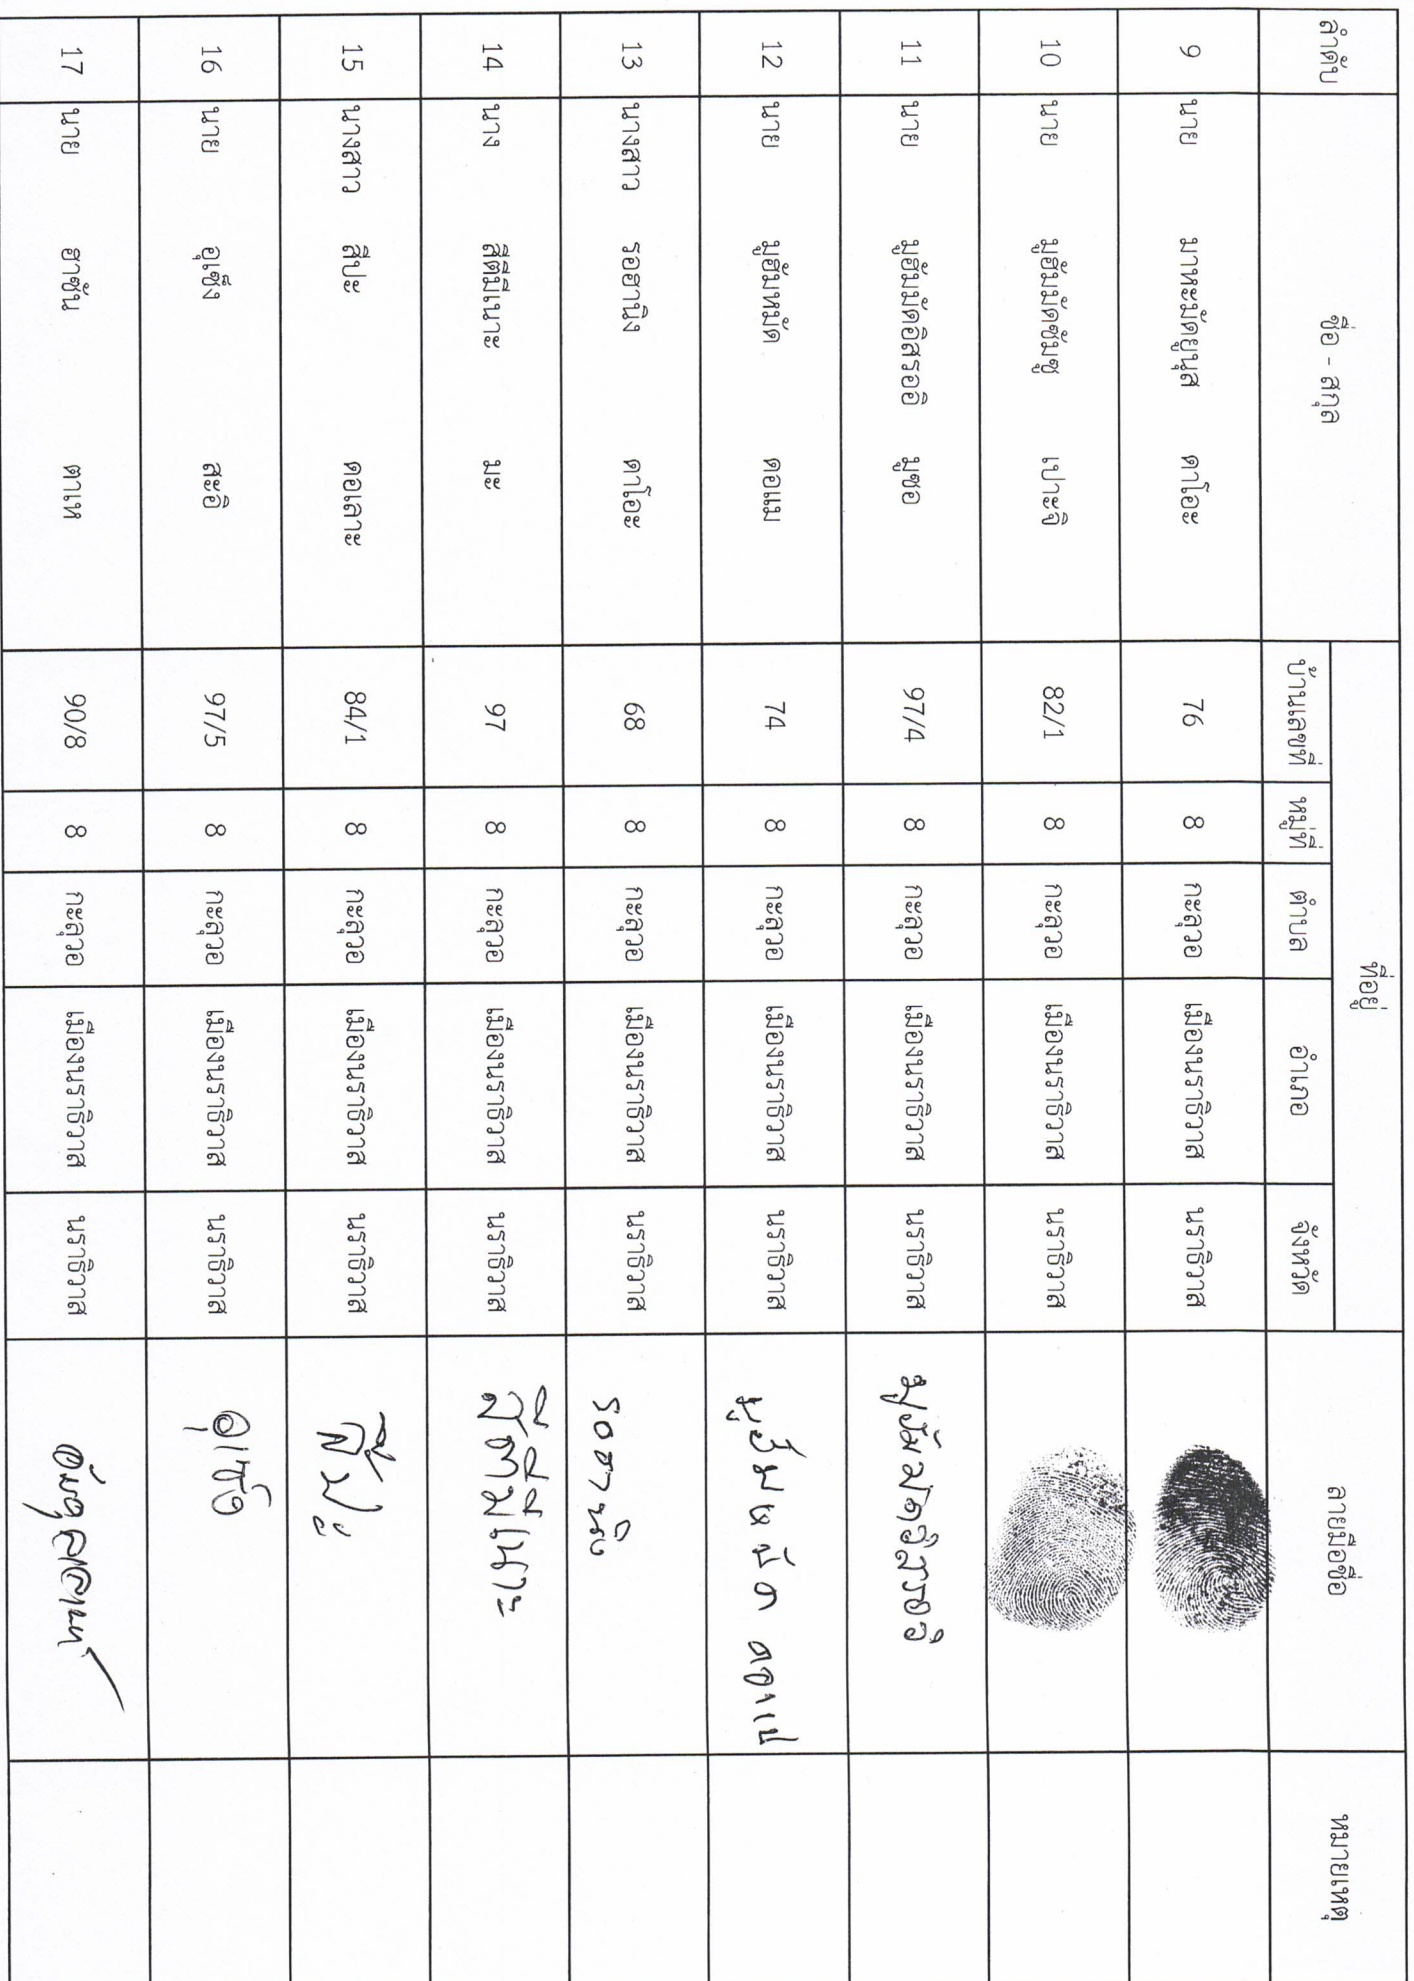 ลำดับ ชื่อ - สกุล ที่อยู่ ลายมือชื่อ หมายเหตุ
บ้านเลขที่ หมู่ที่ ตำบล อำเภอ จังหวัด
9 นาย มาหะมัดยูนุส ดาโอะ 76 8 กะลุวอ เมืองนราธิวาส นราธิวาส
10 นาย มูฮัมมัดซัมซู เปาะจิ 82/1 8 กะลุวอ เมืองนราธิวาส นราธิวาส
11 นาย มูฮัมมัดอิสรออิ มูซอ 97/4 8 กะลุวอ เมืองนราธิวาส นราธิวาส มูฮัมมัดอิสรออิ
12 นาย มูฮัมหมัด ดอแม 74 8 กะลุวอ เมืองนราธิวาส นราธิวาส มูฮัมหมัด ดอแม
13 นางสาว รอฮานิง ดาโอะ 68 8 กะลุวอ เมืองนราธิวาส นราธิวาส รอฮานิง
14 นาง สีตีมีเนาะ มะ 97 8 กะลุวอ เมืองนราธิวาส นราธิวาส สีตีมีเนาะ
15 นางสาว สีปะ ดอเลาะ 84/1 8 กะลุวอ เมืองนราธิวาส นราธิวาส สีปะ
16 นาย อุเซ็ง สะอิ 97/5 8 กะลุวอ เมืองนราธิวาส นราธิวาส อุเซ็ง
17 นาย ฮาซัน ตาเห 90/8 8 กะลุวอ เมืองนราธิวาส นราธิวาส